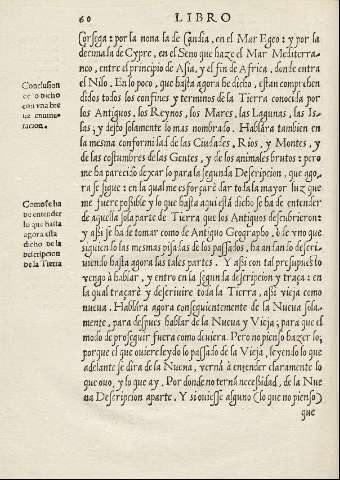 60 LIBRO
Corsega: por la nona la de Candia, en el Mar Egeo: y por la
decima la de Cypre, en el Seno que haze el Mar Mediterra-
neo, entre el principio de Asia, y el fin de Africa, donde entra
el Nilo. En lo poco, que hasta agora he dicho, estan comprehen
didos todos los confines y terminos de la Tierra conocida por
los Antiguos, los Reynos, los Mares, las Lagunas, las Is-
las; y desto solamente lo mas nombrado. Hablàra tambien en
la mesma conformidad de las Ciudades, Rios, y Montes, y
de las costumbres de las Gentes, y de los animales brutos: pero
me ha parecido dexar lo para la segunda Descripcion, que ago-
ra se sigue: en la qual me esforçarè dar toda la mayor luz que
me fuere posible y lo que hasta aqui està dicho se ha de entender
de aquella sola parte de Tierra que los Antiguos descubrieron:
y assi se ha de tomar como de Antiguo Geographo, ò de vno que
siguiendo las mesmas pisadas de los passados, ha andando descri-
uiendo hasta agora las tales partes. Y assi con tal presupuesto
vengo à hablar, y entro en la segunda descripcion y traça: en
la qual traçarè y descriuire toda la Tierra, assi vieja como
nueua. Hablàra agora conseguientemente de la Nueua sola-
mente, para despues hablar de la Nueua y Vieja; para que el
modo de proseguir fuera como deuiera. Pero no pienso hazer lo;
porque el que quiere leydo lo passado de la Vieja, leyendo lo que
adelante se dira de la Nueua, vernà à entender claramente lo
que ouo, y lo que ay. Por donde no ternà necessidad, de la Nue
ua Descripcion aparte. Y si ouiesse alguno (lo que no pienso)
que
Conclusion
de lo dicho
con vna bre
ue enume-
racion.
Como se ha
de entender
lo que hasta
agora està
dicho de la
descripcion
de la Tierra